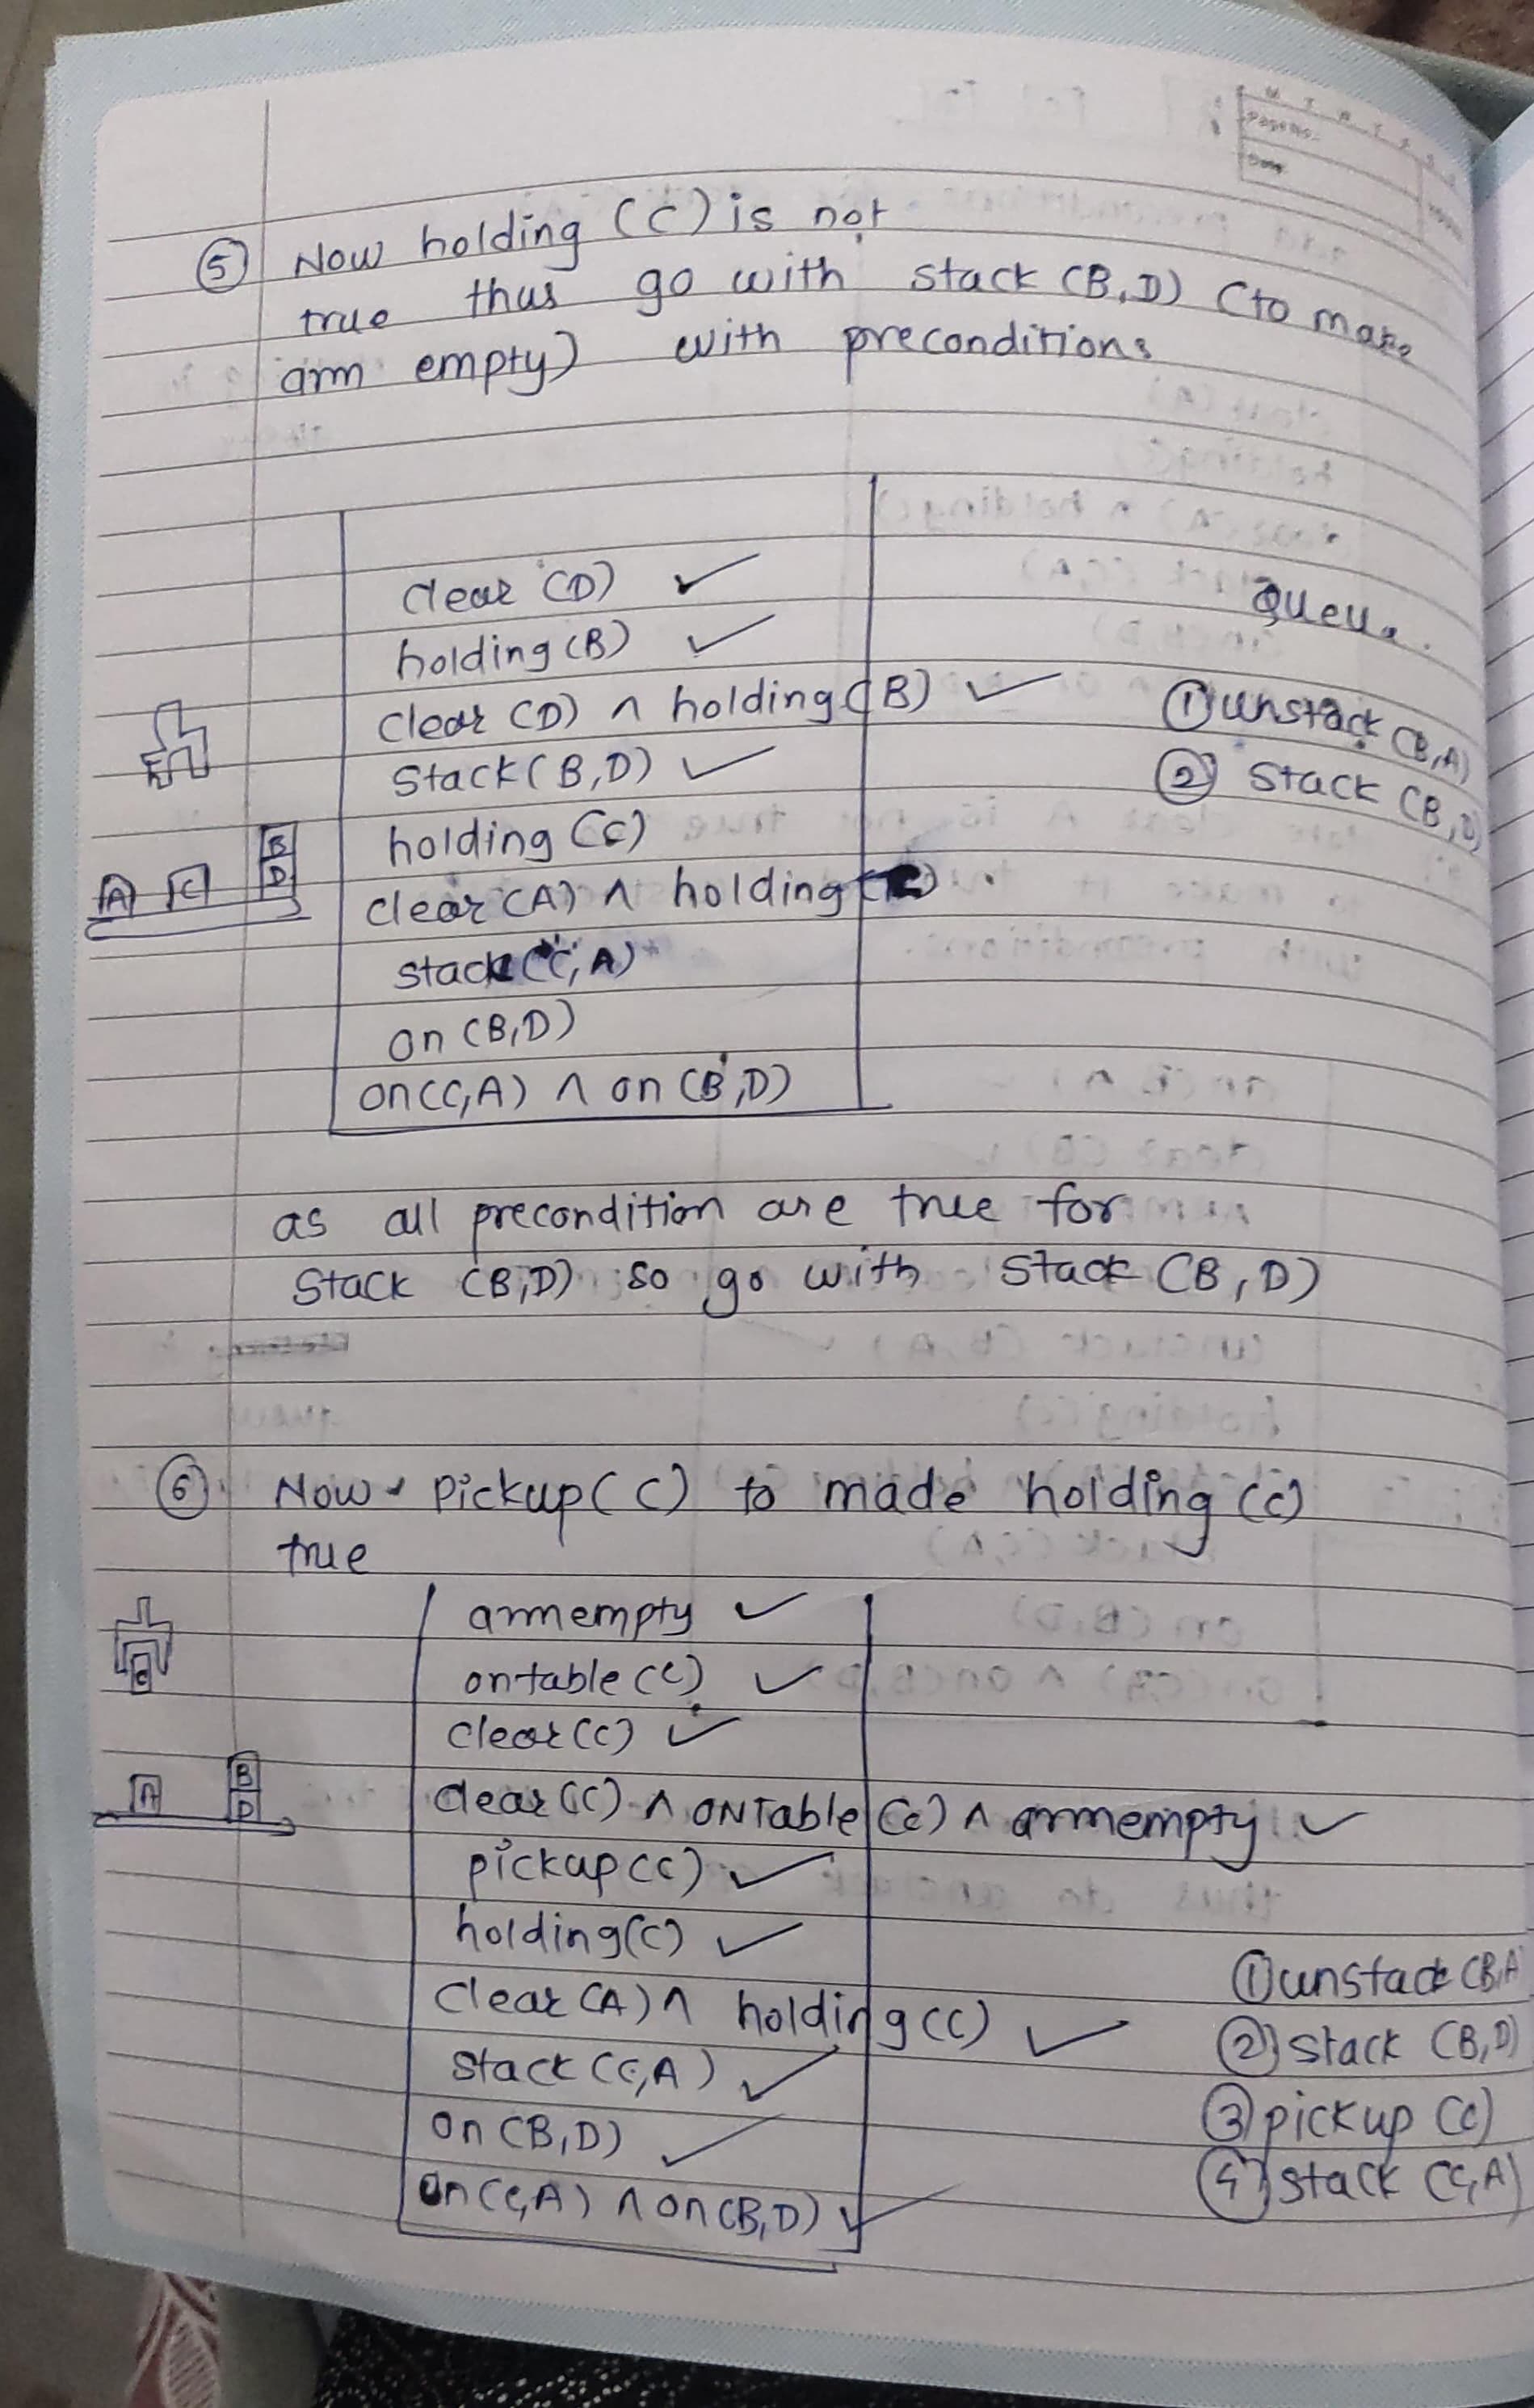 Page No.
Date
⑤ Now holding (C) is not
true thus go with stack (B,D) (to make
arm empty) with preconditions
clear (D) ✓
holding (B) ✓
clear (D) ∧ holding (B) ✓
Stack (B,D) ✓
holding (C)
clear (A) ∧ holding (C)
stack (C,A)
on (B,D)
on (C,A) ∧ on (B,D)
B
A C D
Queue
① unstack (B,A)
② Stack (B,D)
as all precondition are true for
Stack (B,D) so go with Stack (B,D)
⑥ Now Pickup (C) to made holding (C)
true
armempty ✓
ontable (C) ✓
clear (C) ✓
clear (C) ∧ ONTable (C) ∧ armempty ✓
pickup (C) ✓
holding (C) ✓
clear (A) ∧ holding (C) ✓
stack (C,A) ✓
on (B,D) ✓
on (C,A) ∧ on (B,D) ✓
C
B
A D
① unstack (B,A
② stack (B,D)
③ pickup (C)
④ stack (C,A)